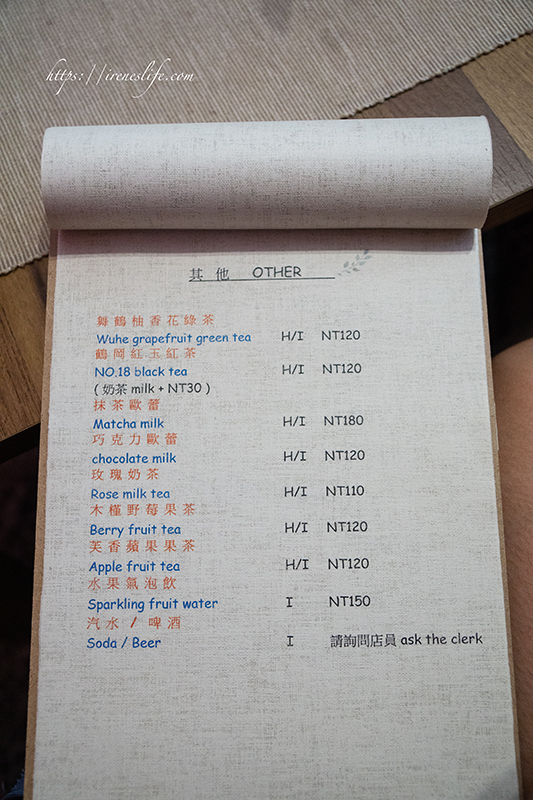 https://ireneslife.com
其 他 OTHER
舞鶴柚香花綠茶
Wuhe grapefruit green tea H/I NT120
鶴岡紅玉紅茶
NO.18 black tea H/I NT120
( 奶茶 milk + NT30 )
抹茶歐蕾
Matcha milk H/I NT180
巧克力歐蕾
chocolate milk H/I NT120
玫瑰奶茶
Rose milk tea H/I NT110
木槿野莓果茶
Berry fruit tea H/I NT120
芙香蘋果果茶
Apple fruit tea H/I NT120
水果氣泡飲
Sparkling fruit water I NT150
汽水 / 啤酒
Soda / Beer I 請詢問店員 ask the clerk